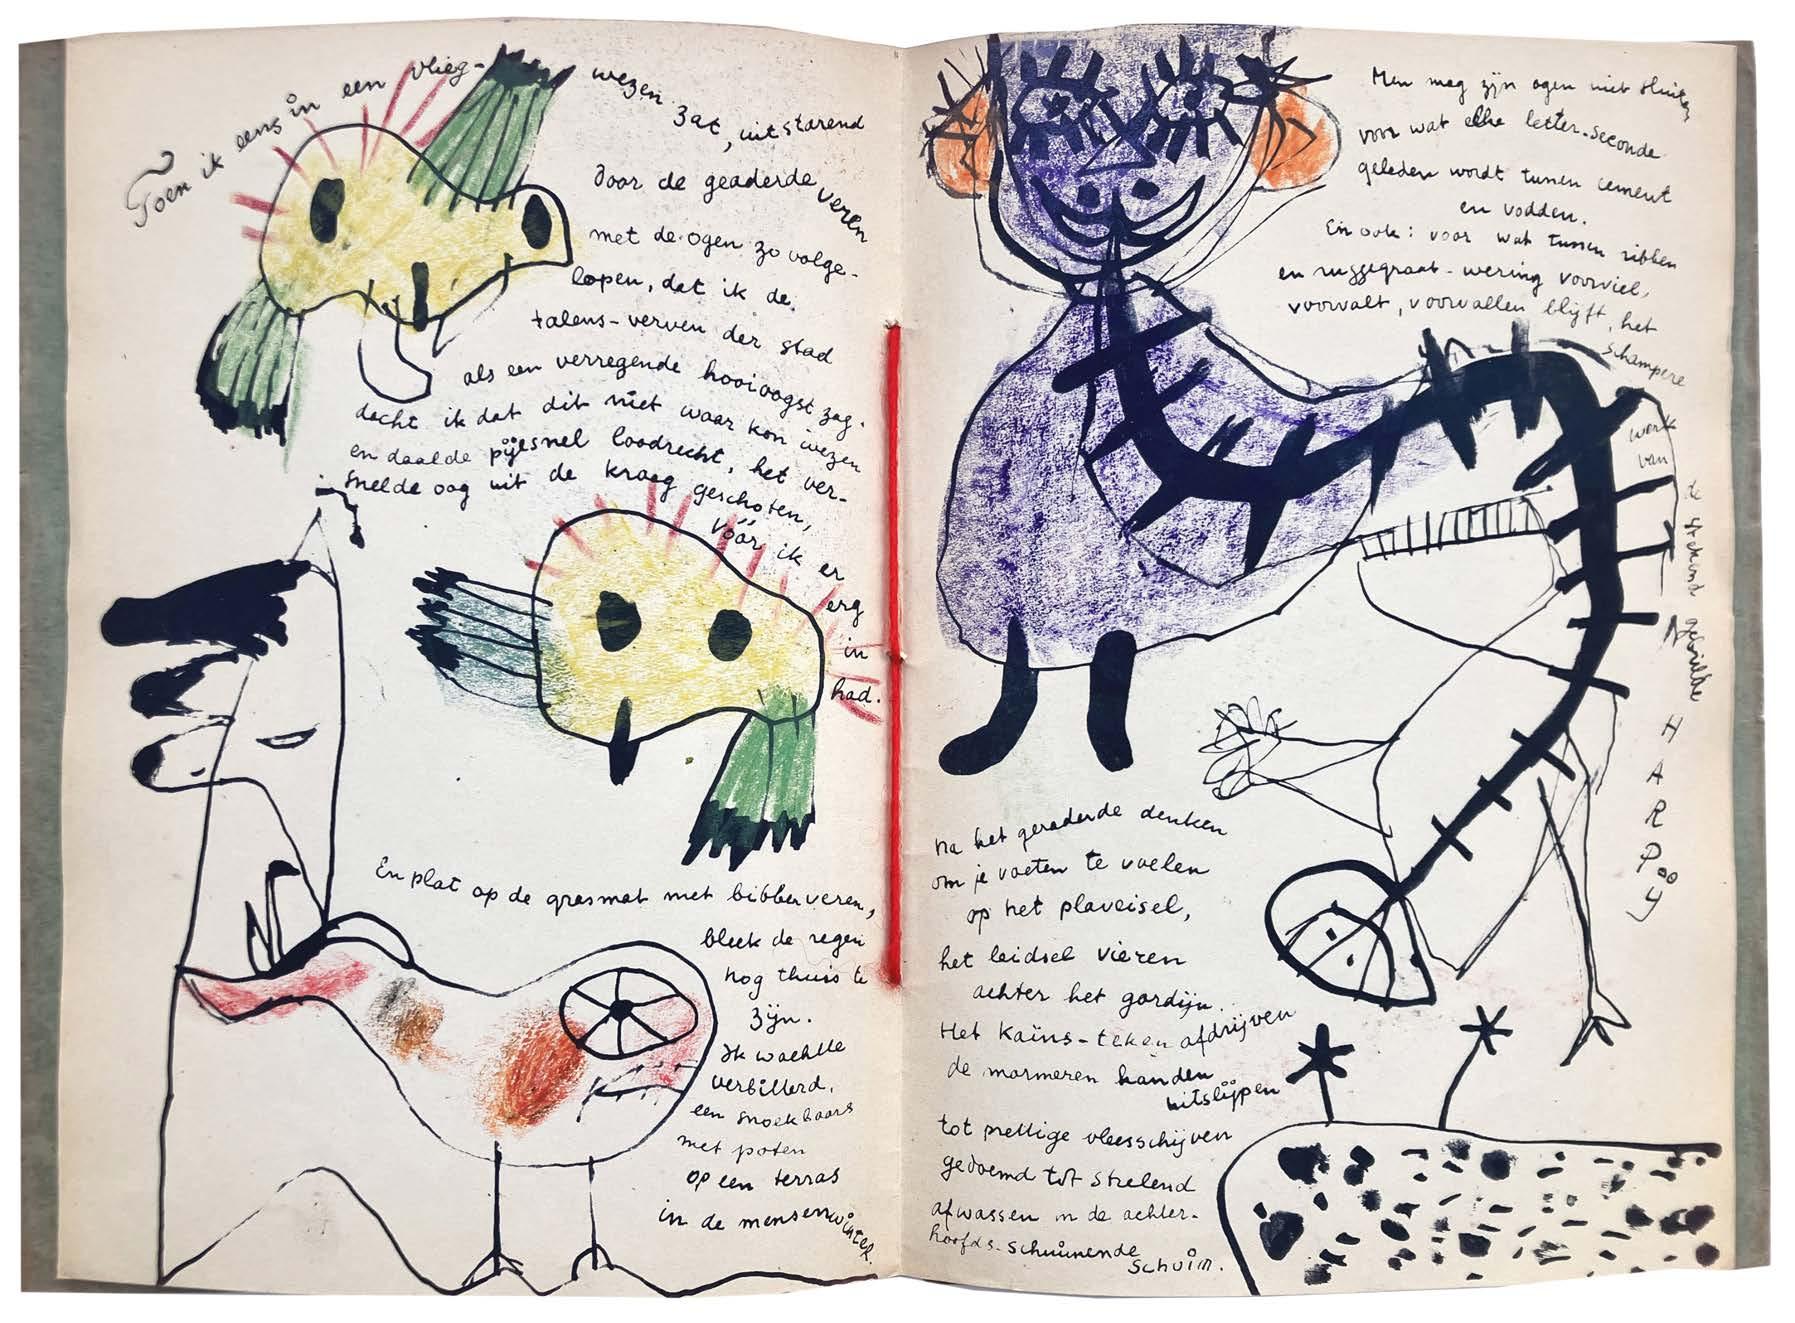 Toen ik eens in een vlieg-
wezen zat, uitstarend
door de geaderde veren
met de ogen zo volge-
lopen, dat ik de
talens-verven der stad
als een verregende hooioogst zag.
dacht ik dat dit niet waar kon wezen
en daalde pijlsnel loodrecht, het ver-
snelde oog uit de kraag geschoten,
vóór ik er
erg
in
had.
En plat op de grasmat met bibberveren,
bleek de regen
nog thuis te
zijn.
Ik wachtte
verbitterd,
een snoekbaars
met poten
op een terras
in de mensenwinter.
Men mag zijn ogen niet sluiten
voor wat elke letter-seconde
geleden wordt tussen cement
en vodden.
En ook: voor wat tussen ribben
en ruggegraat-wering voorviel,
voorvalt, voorvallen blijft, het
schampere
werk
van
de stekend
HARPIJ
Na het geraderde denken
om je voeten te voelen
op het plaveisel,
het leidsel vieren
achter het gordijn.
Het kaïns-teken afdrijven
de marmeren handen
uitslijpen
tot prettige vleesschijven
gedoemd tot strelend
afwassen in de achter-
hoofds-schuimende
schuim.